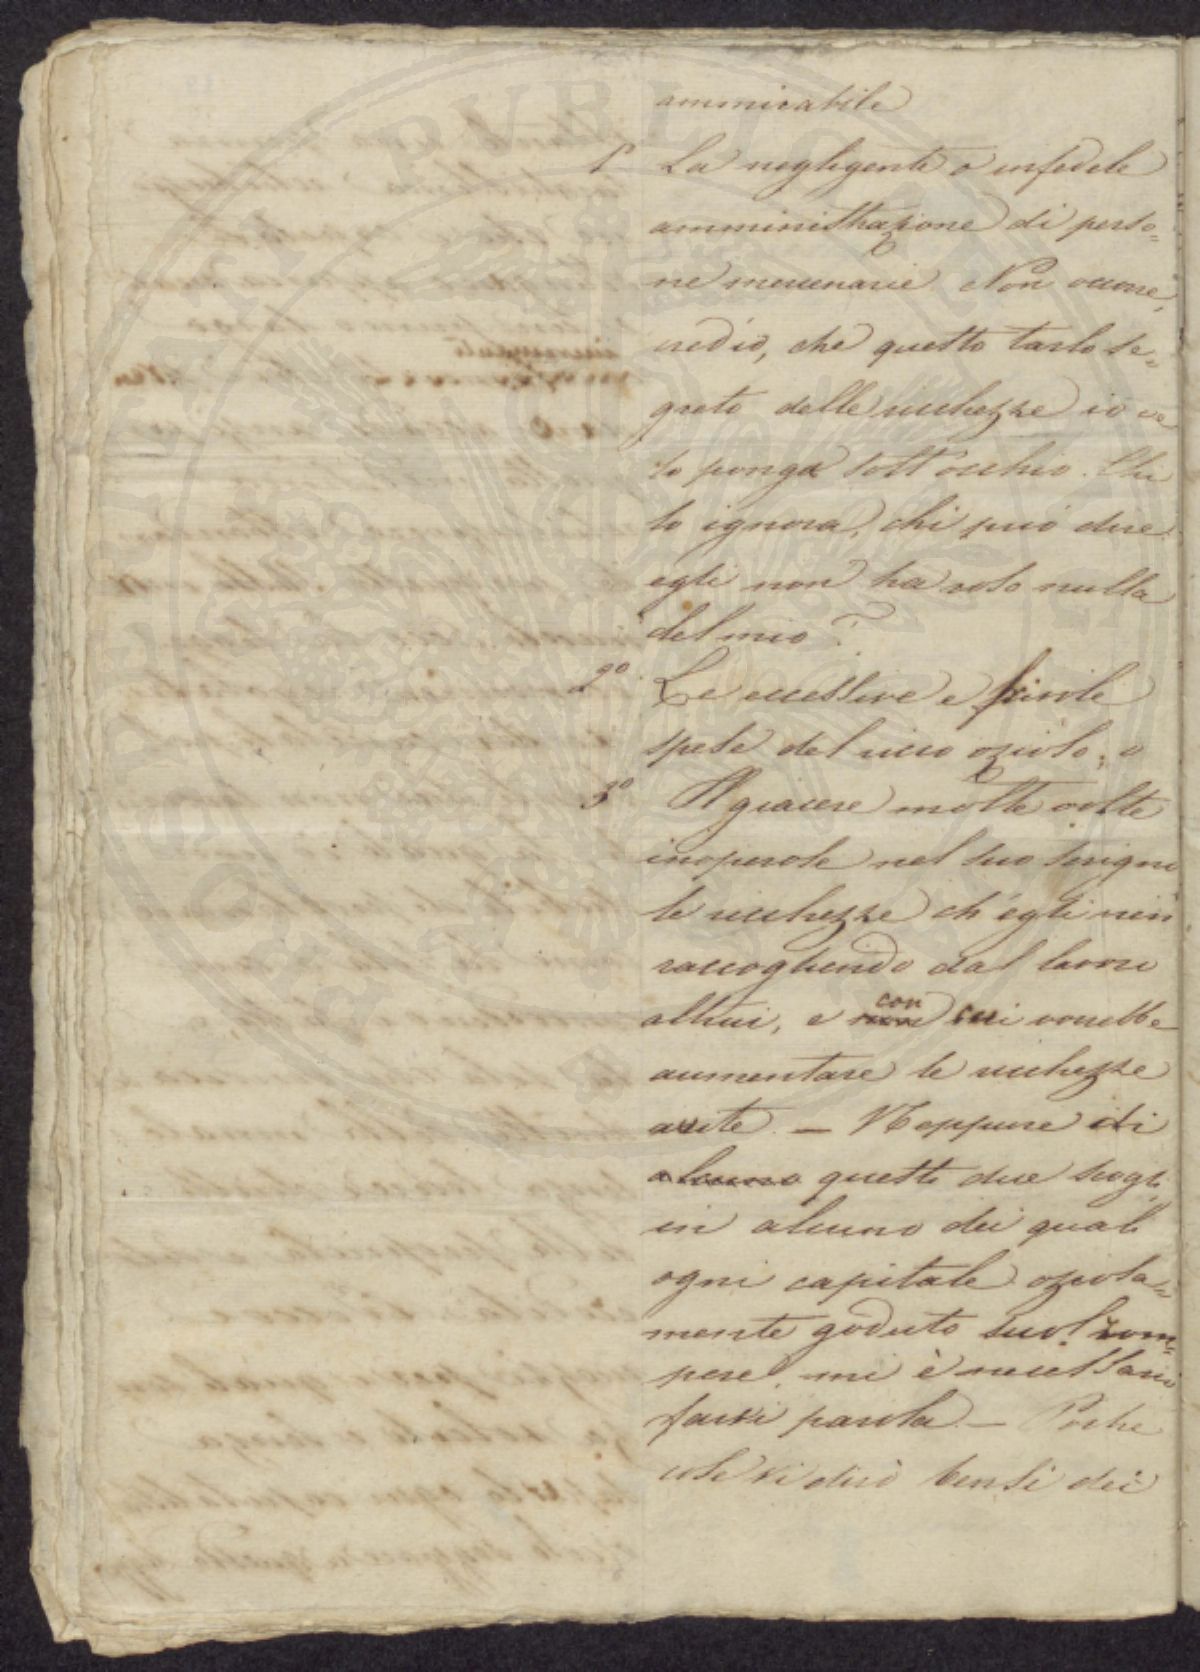 ammicabile
1º La negligente o infedele
amministrazione di perso=
ne mercenarie. Non occorre,
credio, che questo tarlo se=
greto delle ricchezze io ve
lo ponga sott'occhio. Chi
lo ignora, chi può dire
egli non ha roso nulla
del mio?
2º Le eccessive e frivole
spese del ricco ozioso; o
3º Il giacere molte volte
inoperose nel suo scrigno
le ricchezze ch'egli vien
raccogliendo dal lavoro
altrui, e con cui vorrebbe
aumentare le ricchezze
avite. — Neppure di
alcuno questi due scogli
in alcuno dei quali
ogni capitale oziosa=
mente goduto suol rom=
pere, mi è necessario
farvi parola. — Poche
cose vi dirò bensì dei